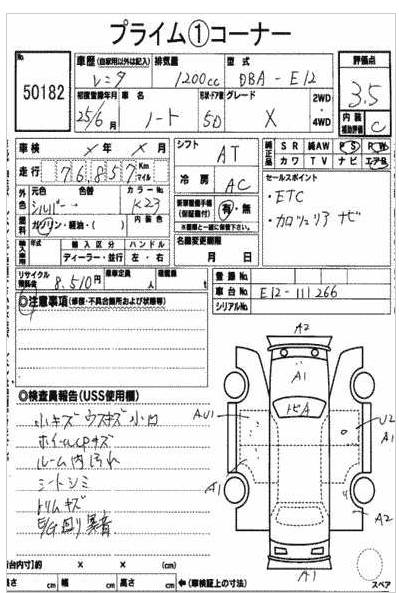 プライム①コーナー
No.
50182
車歴 (自家用以外は記入)
レンタ
排気量
1200cc
型式
DBA-E12
評価点
3.5
初度登録年月
25/6月
車名
ノート
形状・ドア数
5D
グレード
X
2WD・4WD
内装補助評価
C
車検
×年×月
シフト
AT
純正品
SR 純AW PS PW
カワ TV ナビ エアB
走行
76,857
Km
マイル
冷房
AC
セールスポイント
・ETC
・カロッツェリア ナビ
外色
元色
シルバー
色替
カラーNo.
K23
燃料
ガソリン・軽油・( )
内装色
新車整備手帳(保証書付)
有・無
※書類と一緒に保管下さい。
輸入車
年式
輸入区分
ディーラー・並行
ハンドル
左・右
名義変更期限
月 日
リサイクル預託金
8,510円
乗車定員
人
積載量
t
登録No.
車台No.
E12-111266
シリアルNo.
◎注意事項(修復・不具合箇所および状態等)
◎検査員報告(USS使用欄)
小キズ ウスキズ 小凹
ホイールCPキズ
ルーム内汚れ
シートシミ
トリムキズ
E/G廻り異音
A2
A1
トビA
AU1
U2
A1
A1
A2
A1
(荷台内寸)
× × (cm)
長さ cm 幅 cm 高さ cm
←(車検証上の寸法)
スペア